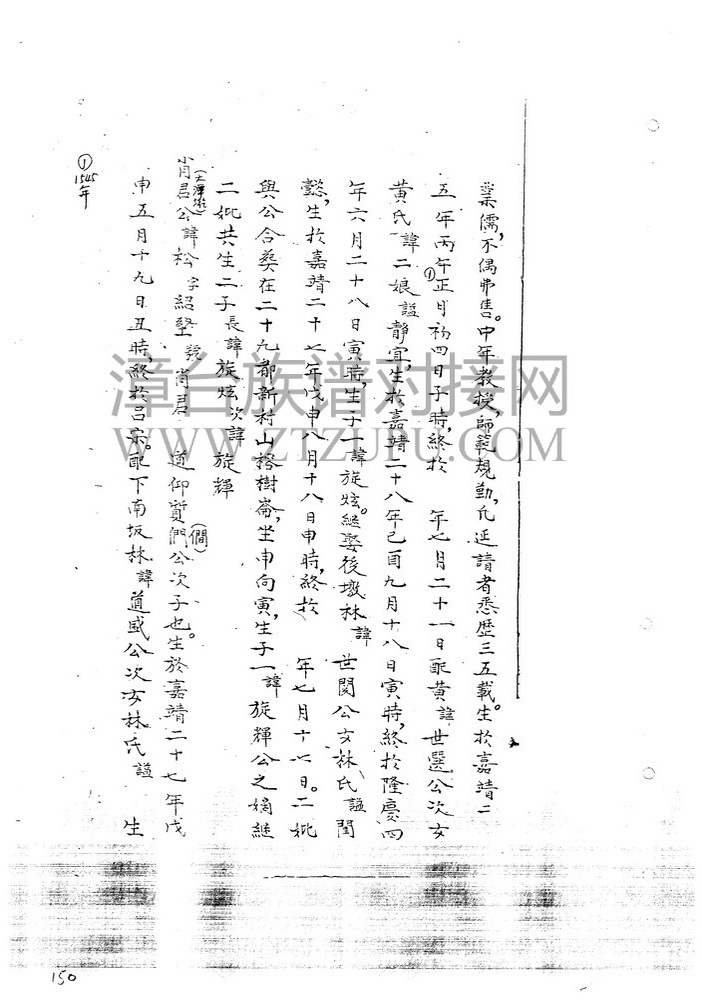 業儒，不偶弗售。中年教授，師範規勤，凡延請者悉歷三五載。生於嘉靖二
五年丙午①正月初四日子時，終於　年七月二十一日配黃諱世選公次女
黃氏諱二娘謚靜宜，生於嘉靖二十八年己酉九月十八日寅時，終於隆慶四
年六月二十八日寅時，生子一諱旋炫。繼娶後墩林諱　世閱公女林氏謚閨
懿，生於嘉靖二十七年戊申八月十八日申時，終於　年七月十六日。二妣
與公合葬在二十九都新村山榕樹崙，坐申向寅，生子一諱旋輝公之嫡繼
二妣共生二子長諱旋炫次諱旋輝
肖君公諱松字紹堅號肖君　道仰質們(僩)公次子也。生於嘉靖二十七年戊
申五月十九日丑時，終於呂宋。配下南坂林諱道盛公次女林氏謚　生
①1545年
150
漳台族谱对接网
WWW.ZTZUPU.COM